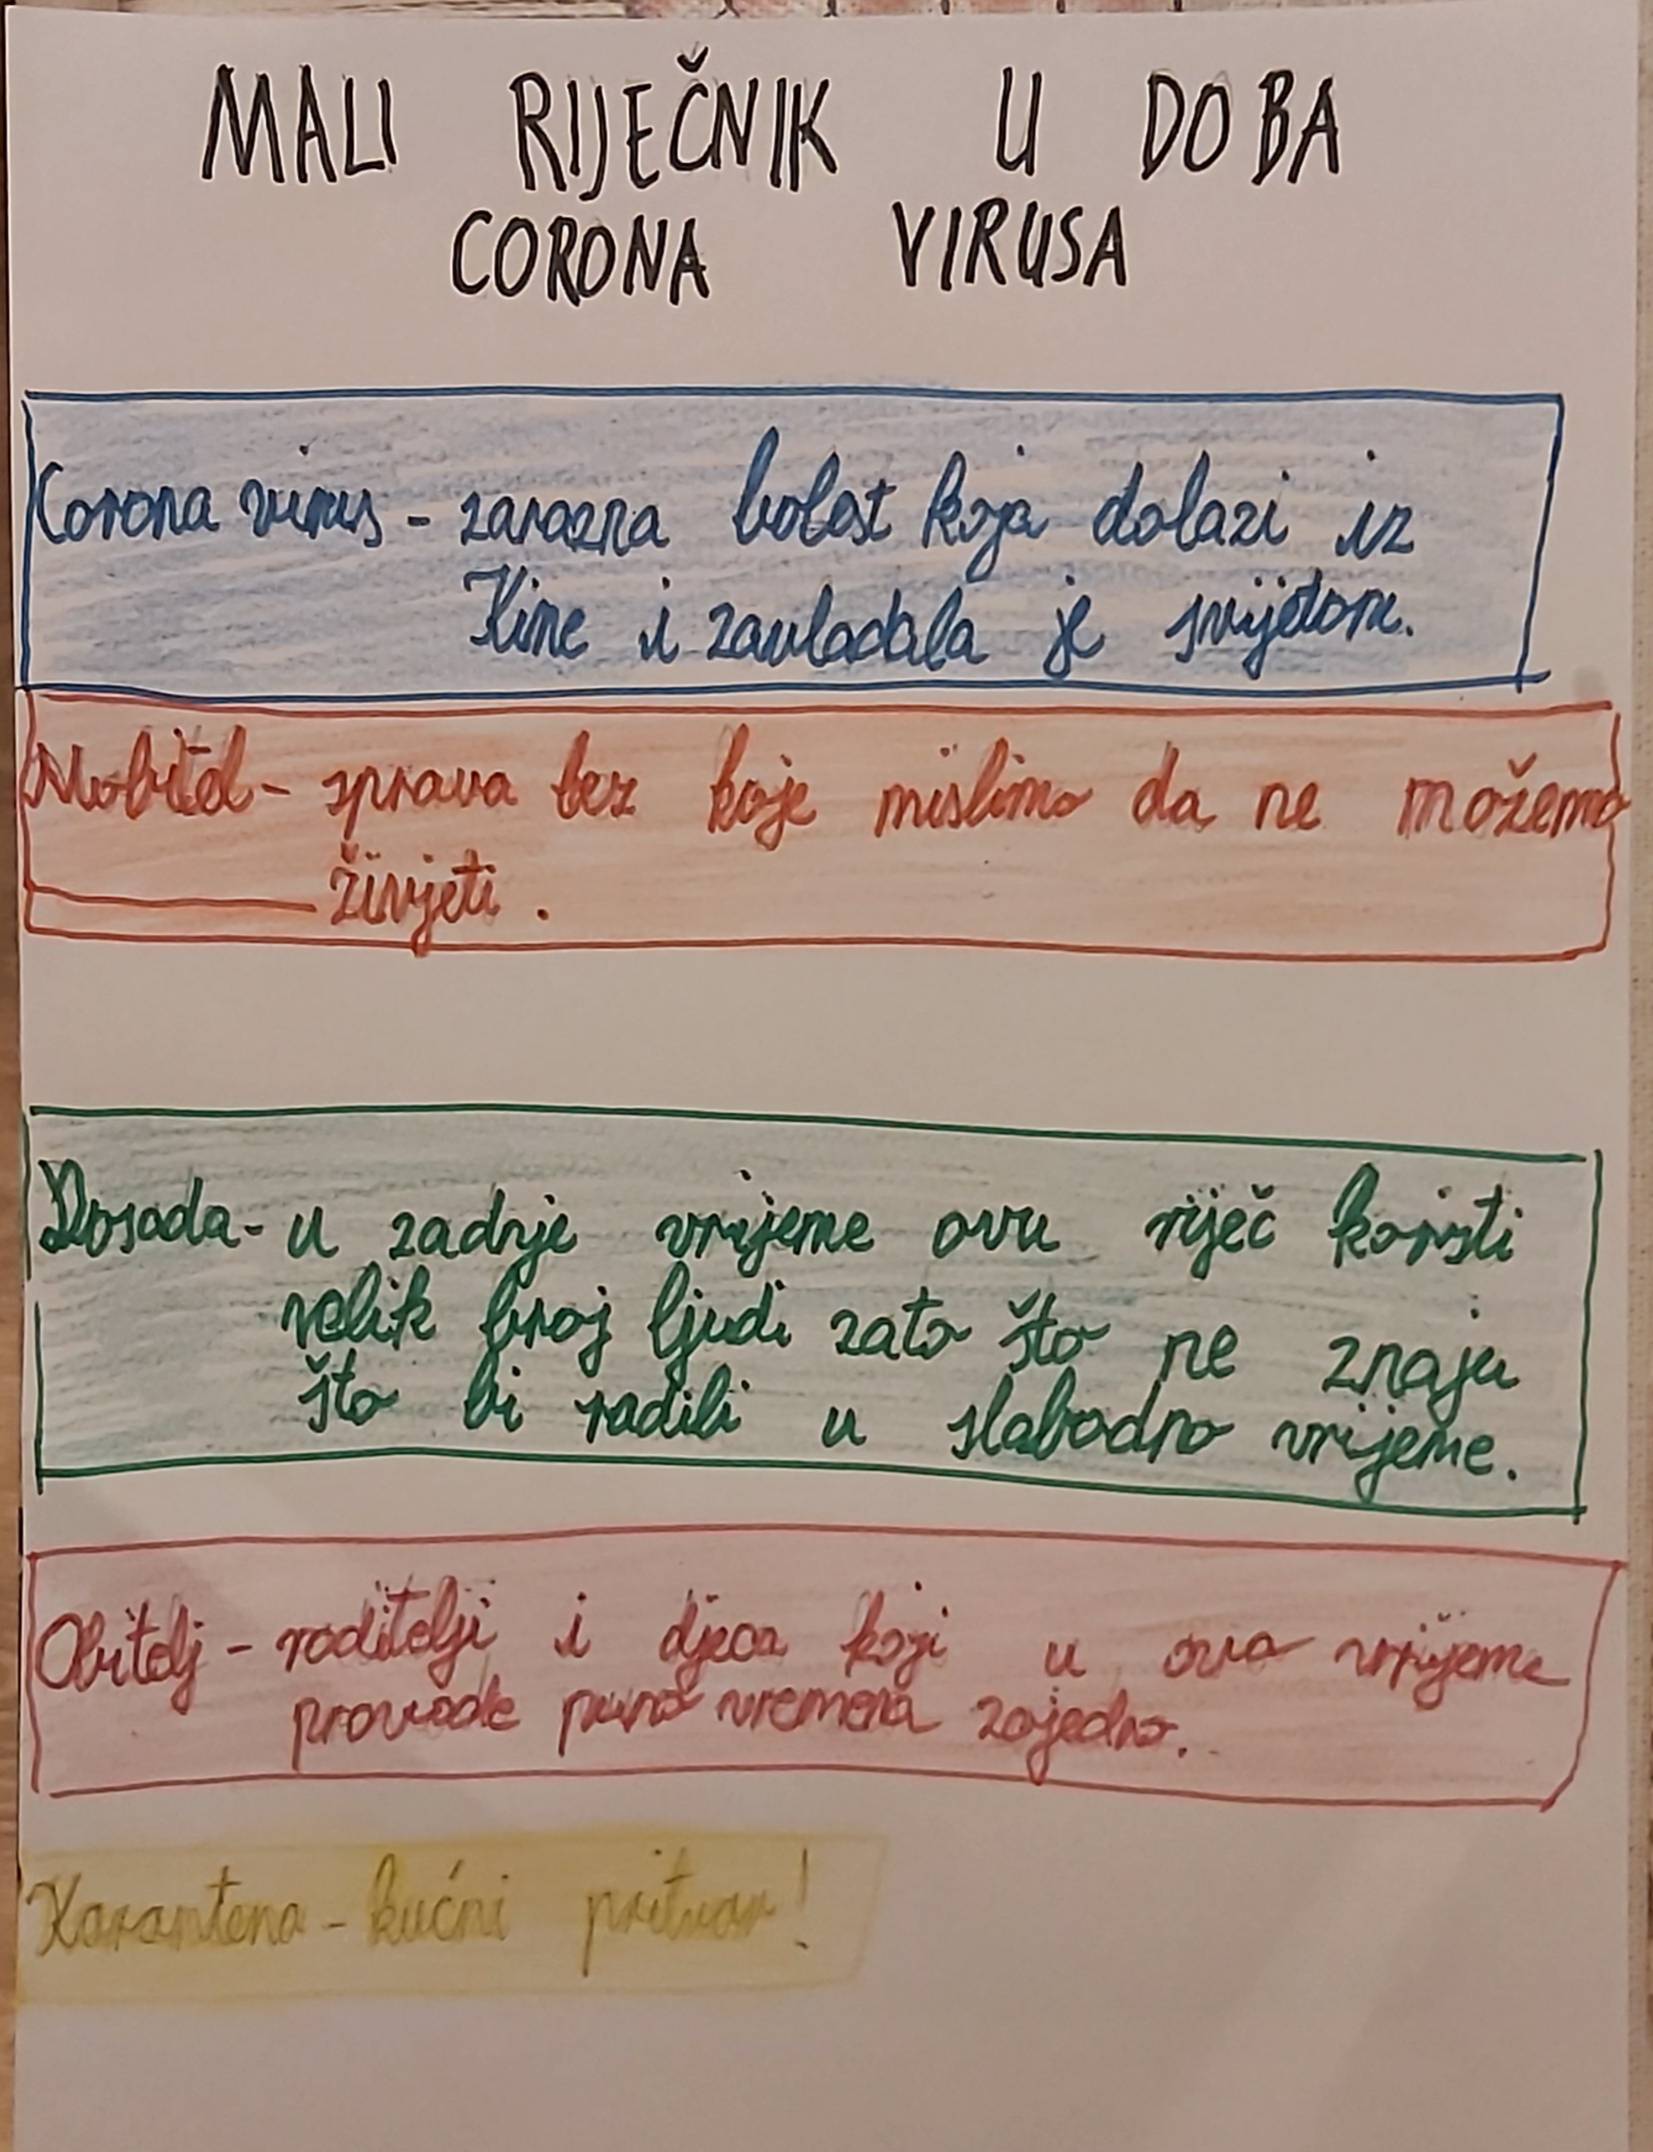 MALI RIJEČNIK U DOBA
CORONA VIRUSA
Corona virus - zarazna bolest koja dolazi iz
Kine i zavladala je svijetom.
Mobitel - sprava bez koje mislimo da ne možemo
živjeti.
Dosada - u zadnje vrijeme ovu riječ koristi
velik broj ljudi zato što ne znaju
što bi radili u slobodno vrijeme.
Obitelj - roditelji i djeca koji u ovo vrijeme
provode puno vremena zajedno.
Karantena - kućni pritvor!